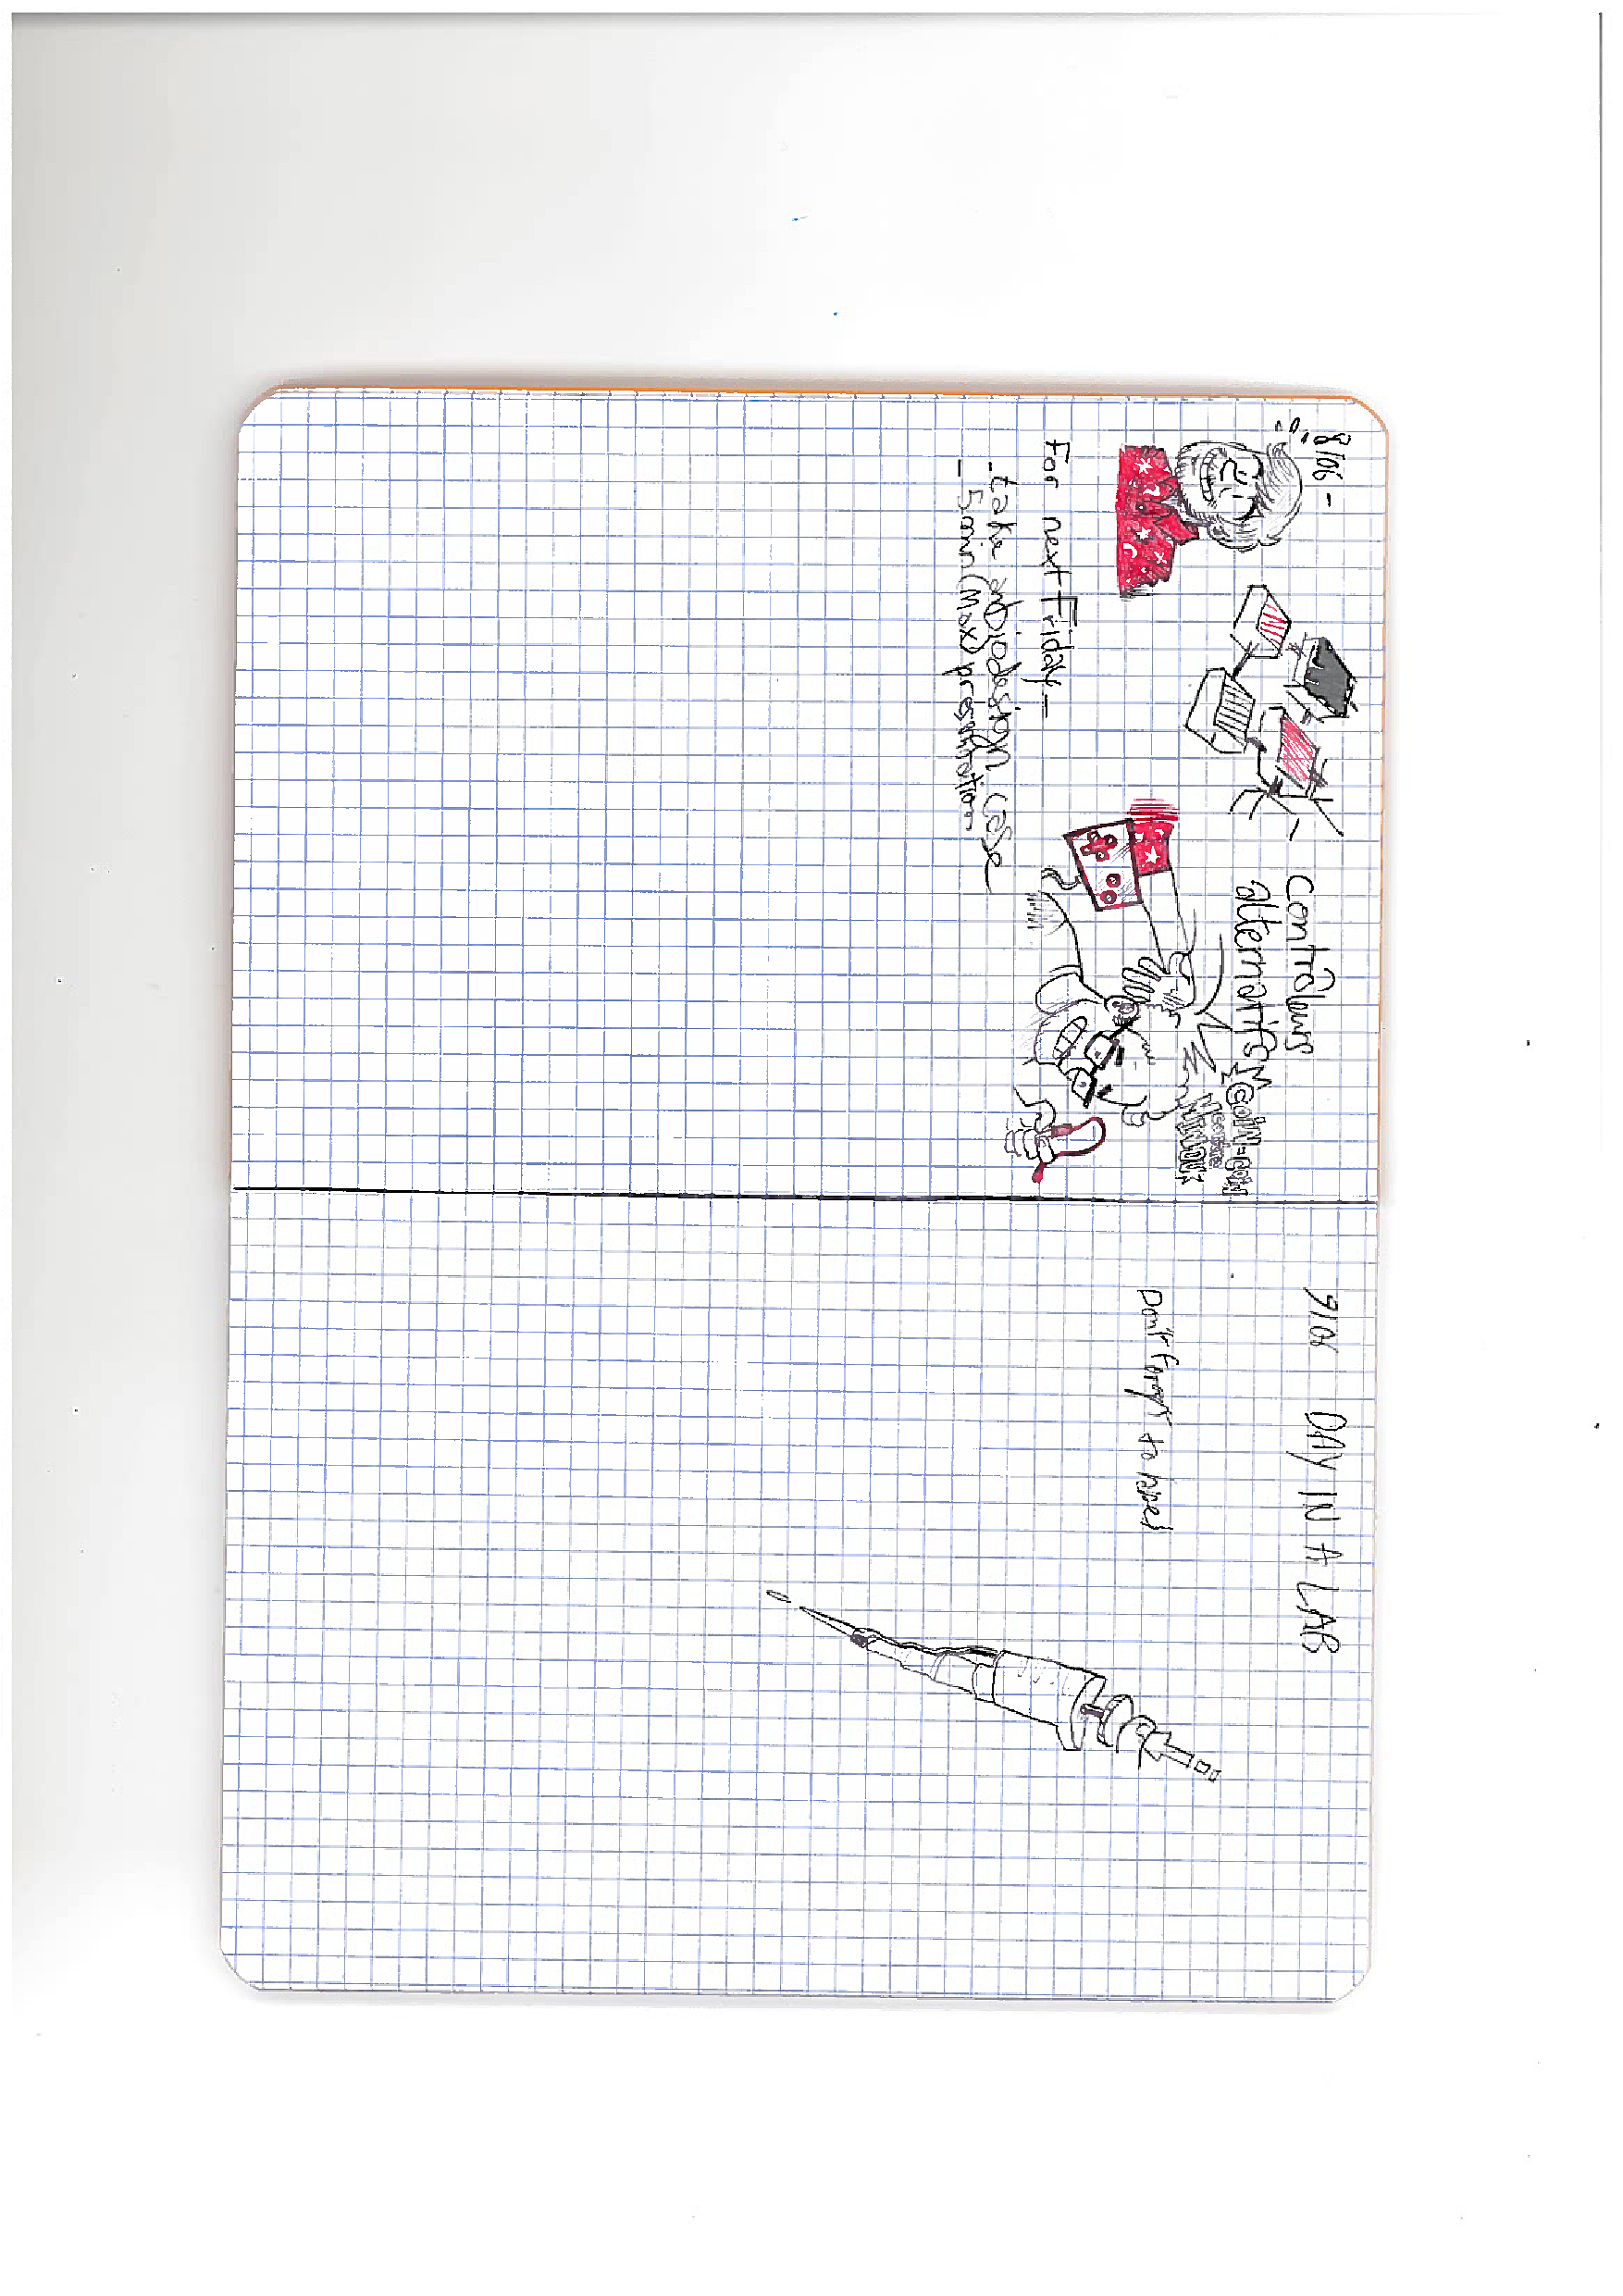 8/06 -
Contrôleurs
alternatifs
COIN-COIN
For next Friday -
- take a biodesign case
- 5 min (Max) presentation
9/06 DAY IN A LAB
Don't forget to label